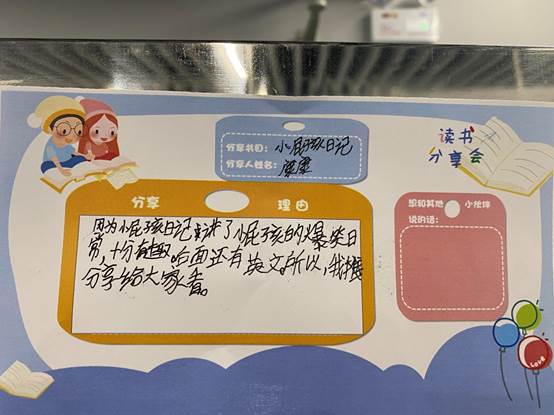 读书
分享会
分享书目：小屁孩日记
分享人姓名：康康
分享 理由
因为小屁孩日记主讲了小屁孩的爆笑日
常，十分有趣，后面还有英文，所以，我想
分享给大家看。
想和其他 小伙伴
说的话：
Love